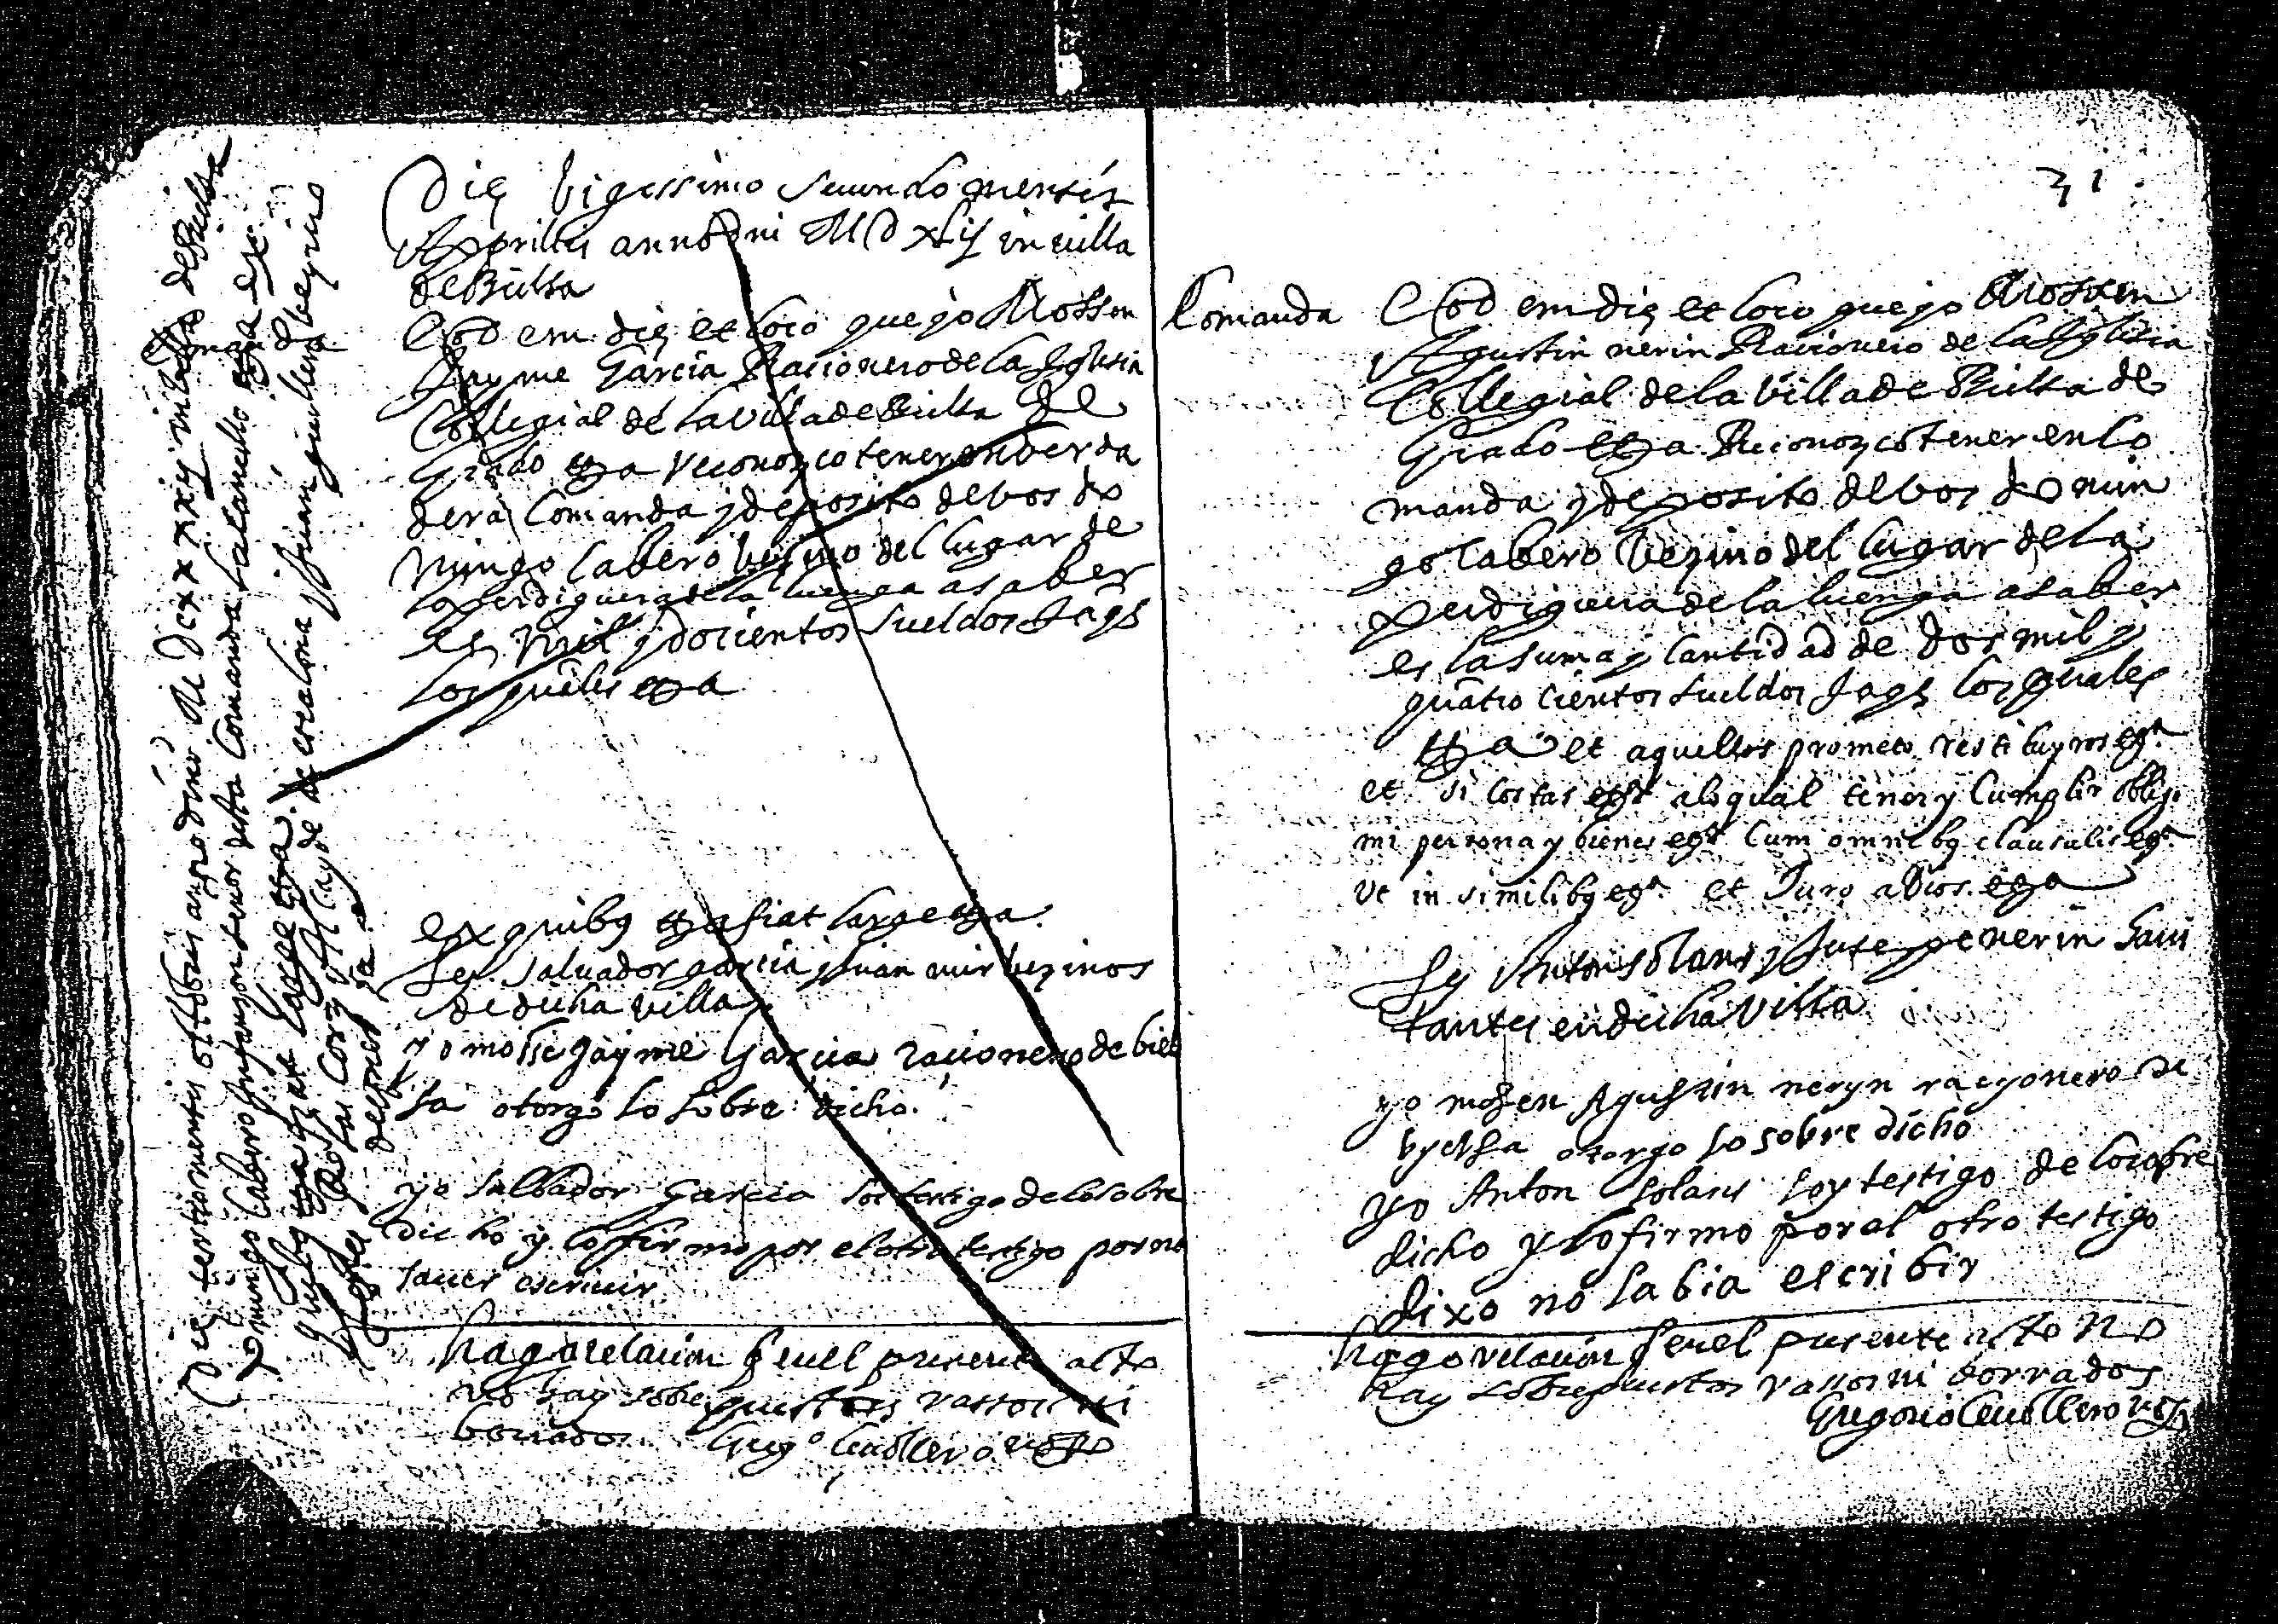 Die vigessimo secundo mensis
Apprilis anno Dni MD in villa
de Bielsa
Comanda
Eodem die et loco que yo Mossen
Jayme Garcia Racionero de la Iglesia
Collegial de la villa de Bielsa de
Grado etza reconozco tener en verda
dera Comanda y deposito de vos do
mingo Cabero vezino del lugar de
Perdiguera de la luenga asaber
es mil y docientos sueldos Jaqs
los quales etza
ex quibus etza fiat large etza.
Ts Salvador garcia y Juan mir vezinos
de dicha villa
yo mosse Jayme Garcia racionero de biel
sa otorgo lo sobre dicho.
yo salbador Garcia soi testigo de lo sobre
dicho y lo firmo por el otro testigo por no
saver escrivir
hago relacion q en el presente acto
no hay sobrepuestos rassos ni
borrados Grego Cavallero noto
Die tertio mensis octobris anno dni MDCXXXXII in villa de Bielsa
Domingo Cabero Infanzon tenor desta Comanda la cancello etza ex
quibus etza fiat large etza.
de escalona y Juan guillem vezino
31
Comanda
Eodem die et loco que yo Mossen
Agustin nerin Racionero de la Iglesia
Collegial de la villa de Bielsa de
Grado etza Reconozco tener en Co
manda y deposito de vos domin
go Cabero vezino del lugar de la
Perdiguera de la luenga asaber
es la suma y cantidad de dos mil y
quatro cientos sueldos Jaqs los quales
etza et aquellos prometo restituyros etª
et si costas etª alo qual tener y cumplir obligo
mi persona y bienes etª cum omnibus clausulis etª
ut in similibus etª et Juro a Dios etza
Ts Anton solans y Jusepe nerin havi
tantes en dicha villa
yo mosen Agustin neryn racyonero de
byelsa otorgo lo sobre dicho
yo Anton solans soy testigo de lo sobre
dicho y lo firmo por al otro testigo
dixo no sabia escribir
hago relacion q en el presente acto no
hay sobrepuestos rassos ni borrados
Gregorio Cavallero noto